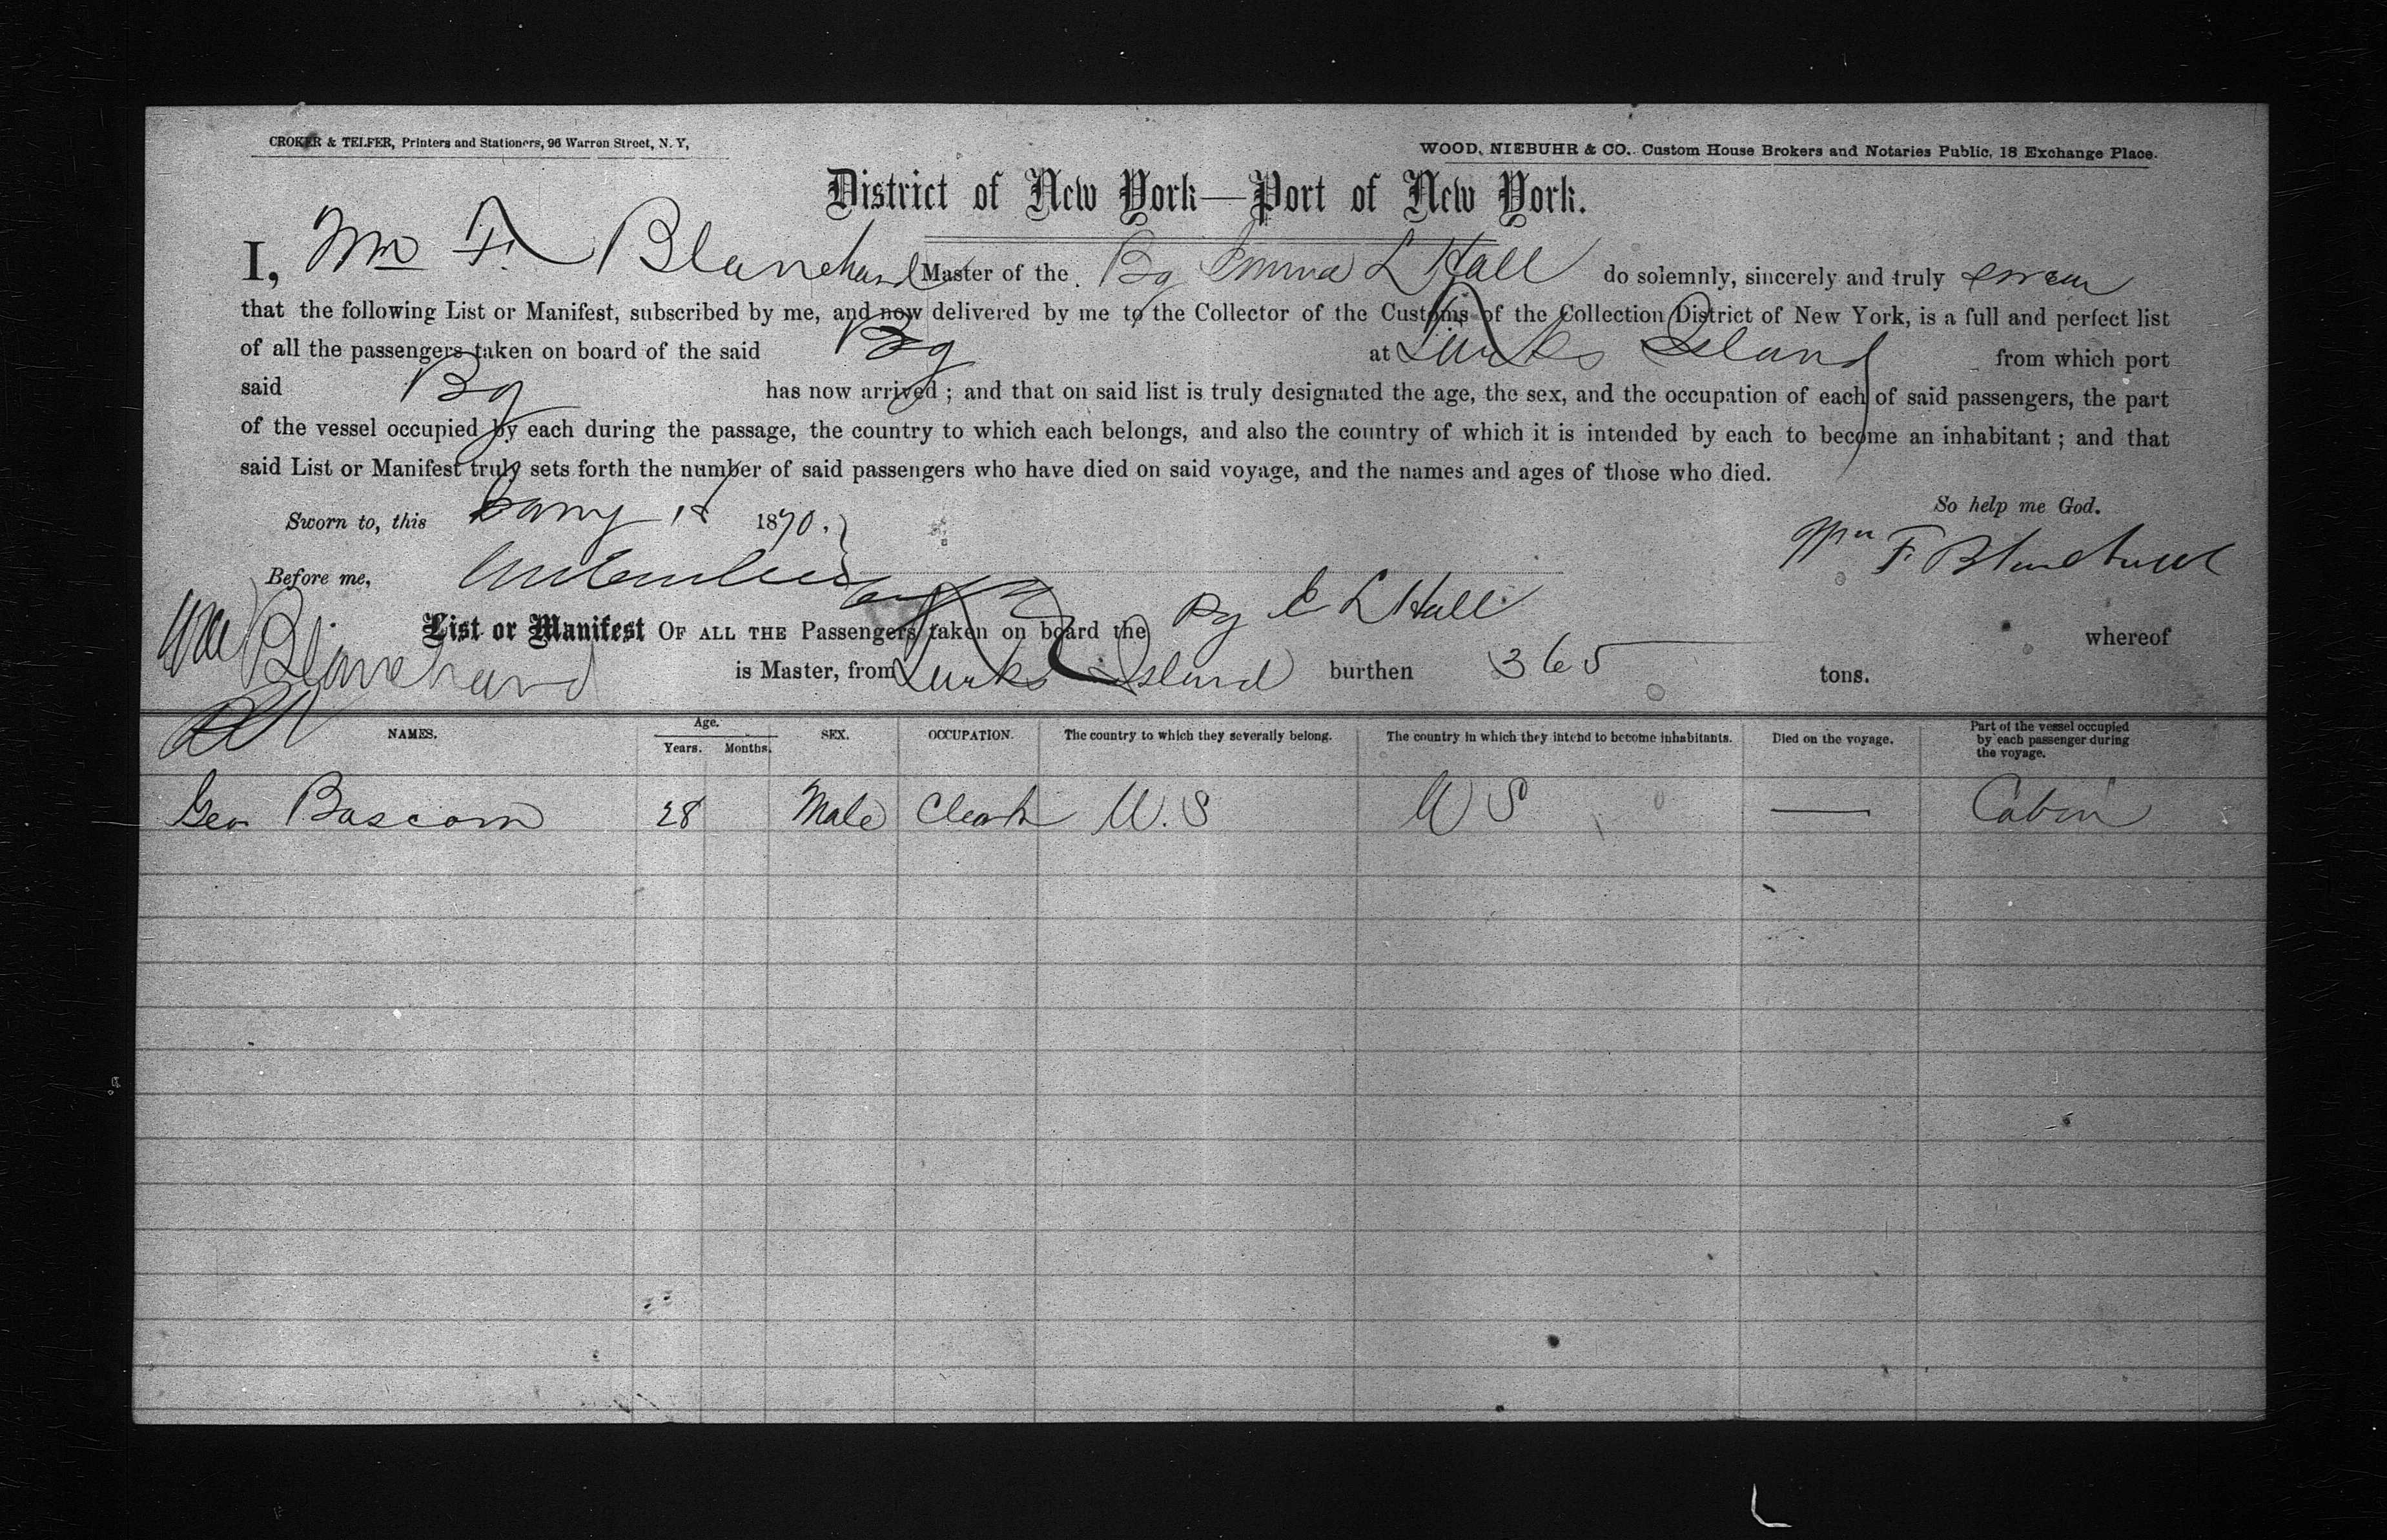 CROKER & TELFER, Printers and Stationers, 96 Warren Street, N. Y,
WOOD, NIEBUHR & CO. Custom House Brokers and Notaries Public, 18 Exchange Place.
District of New York—Port of New York.
I, Wm F. Blanchard Master of the Bg Emma L Hall do solemnly, sincerely and truly swear
that the following List or Manifest, subscribed by me, and now delivered by me to the Collector of the Customs of the Collection District of New York, is a full and perfect list
of all the passengers taken on board of the said Bg at Turks Island from which port
said Bg has now arrived; and that on said list is truly designated the age, the sex, and the occupation of each of said passengers, the part
of the vessel occupied by each during the passage, the country to which each belongs, and also the country of which it is intended by each to become an inhabitant; and that
said List or Manifest truly sets forth the number of said passengers who have died on said voyage, and the names and ages of those who died.
So help me God.
Sworn to, this 1870.
Wm F Blanchard
Before me,
List or Manifest OF ALL THE Passengers taken on board the Bg E L Hall whereof
Wm Blanchard is Master, from Turks Island burthen 365 tons.
NAMES. Age. Years. Months. SEX. OCCUPATION. The country to which they severally belong. The country in which they intend to become inhabitants. Died on the voyage. Part of the vessel occupied by each passenger during the voyage.
Geo Bascom 28 Male Clerk U.S U S — Cabin